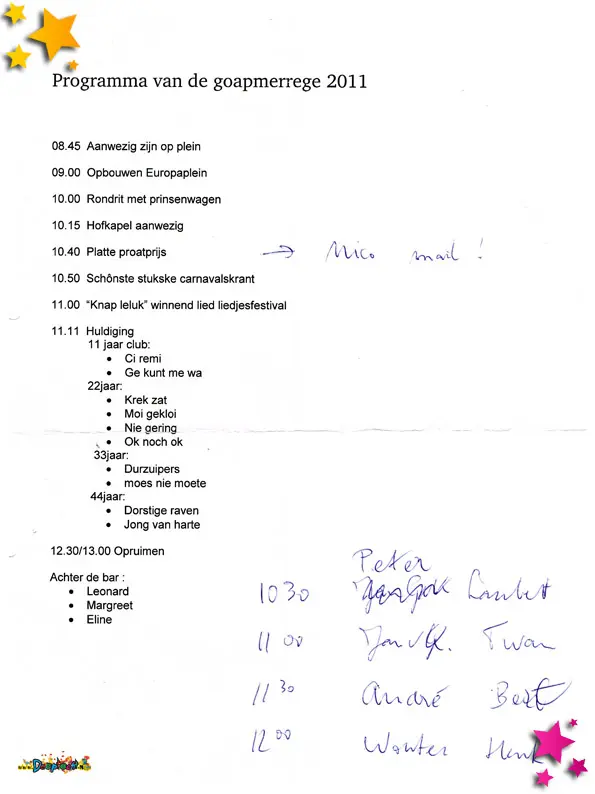 Programma van de goapmerrege 2011
08.45 Aanwezig zijn op plein
09.00 Opbouwen Europaplein
10.00 Rondrit met prinsenwagen
10.15 Hofkapel aanwezig
10.40 Platte proatprijs → Nico mail !
10.50 Schônste stukske carnavalskrant
11.00 “Knap leluk” winnend lied liedjesfestival
11.11 Huldiging
11 jaar club:
• Ci remi
• Ge kunt me wa
22jaar:
• Krek zat
• Moi gekloi
• Nie gering
• Ok noch ok
33jaar:
• Durzuipers
• moes nie moete
44jaar:
• Dorstige raven
• Jong van harte
12.30/13.00 Opruimen
Achter de bar :
• Leonard
• Margreet
• Eline
Peter
10 30 Lambert
11 00 Jan vd. Twan
11 30 André Bert
12 00 Wouter Henk